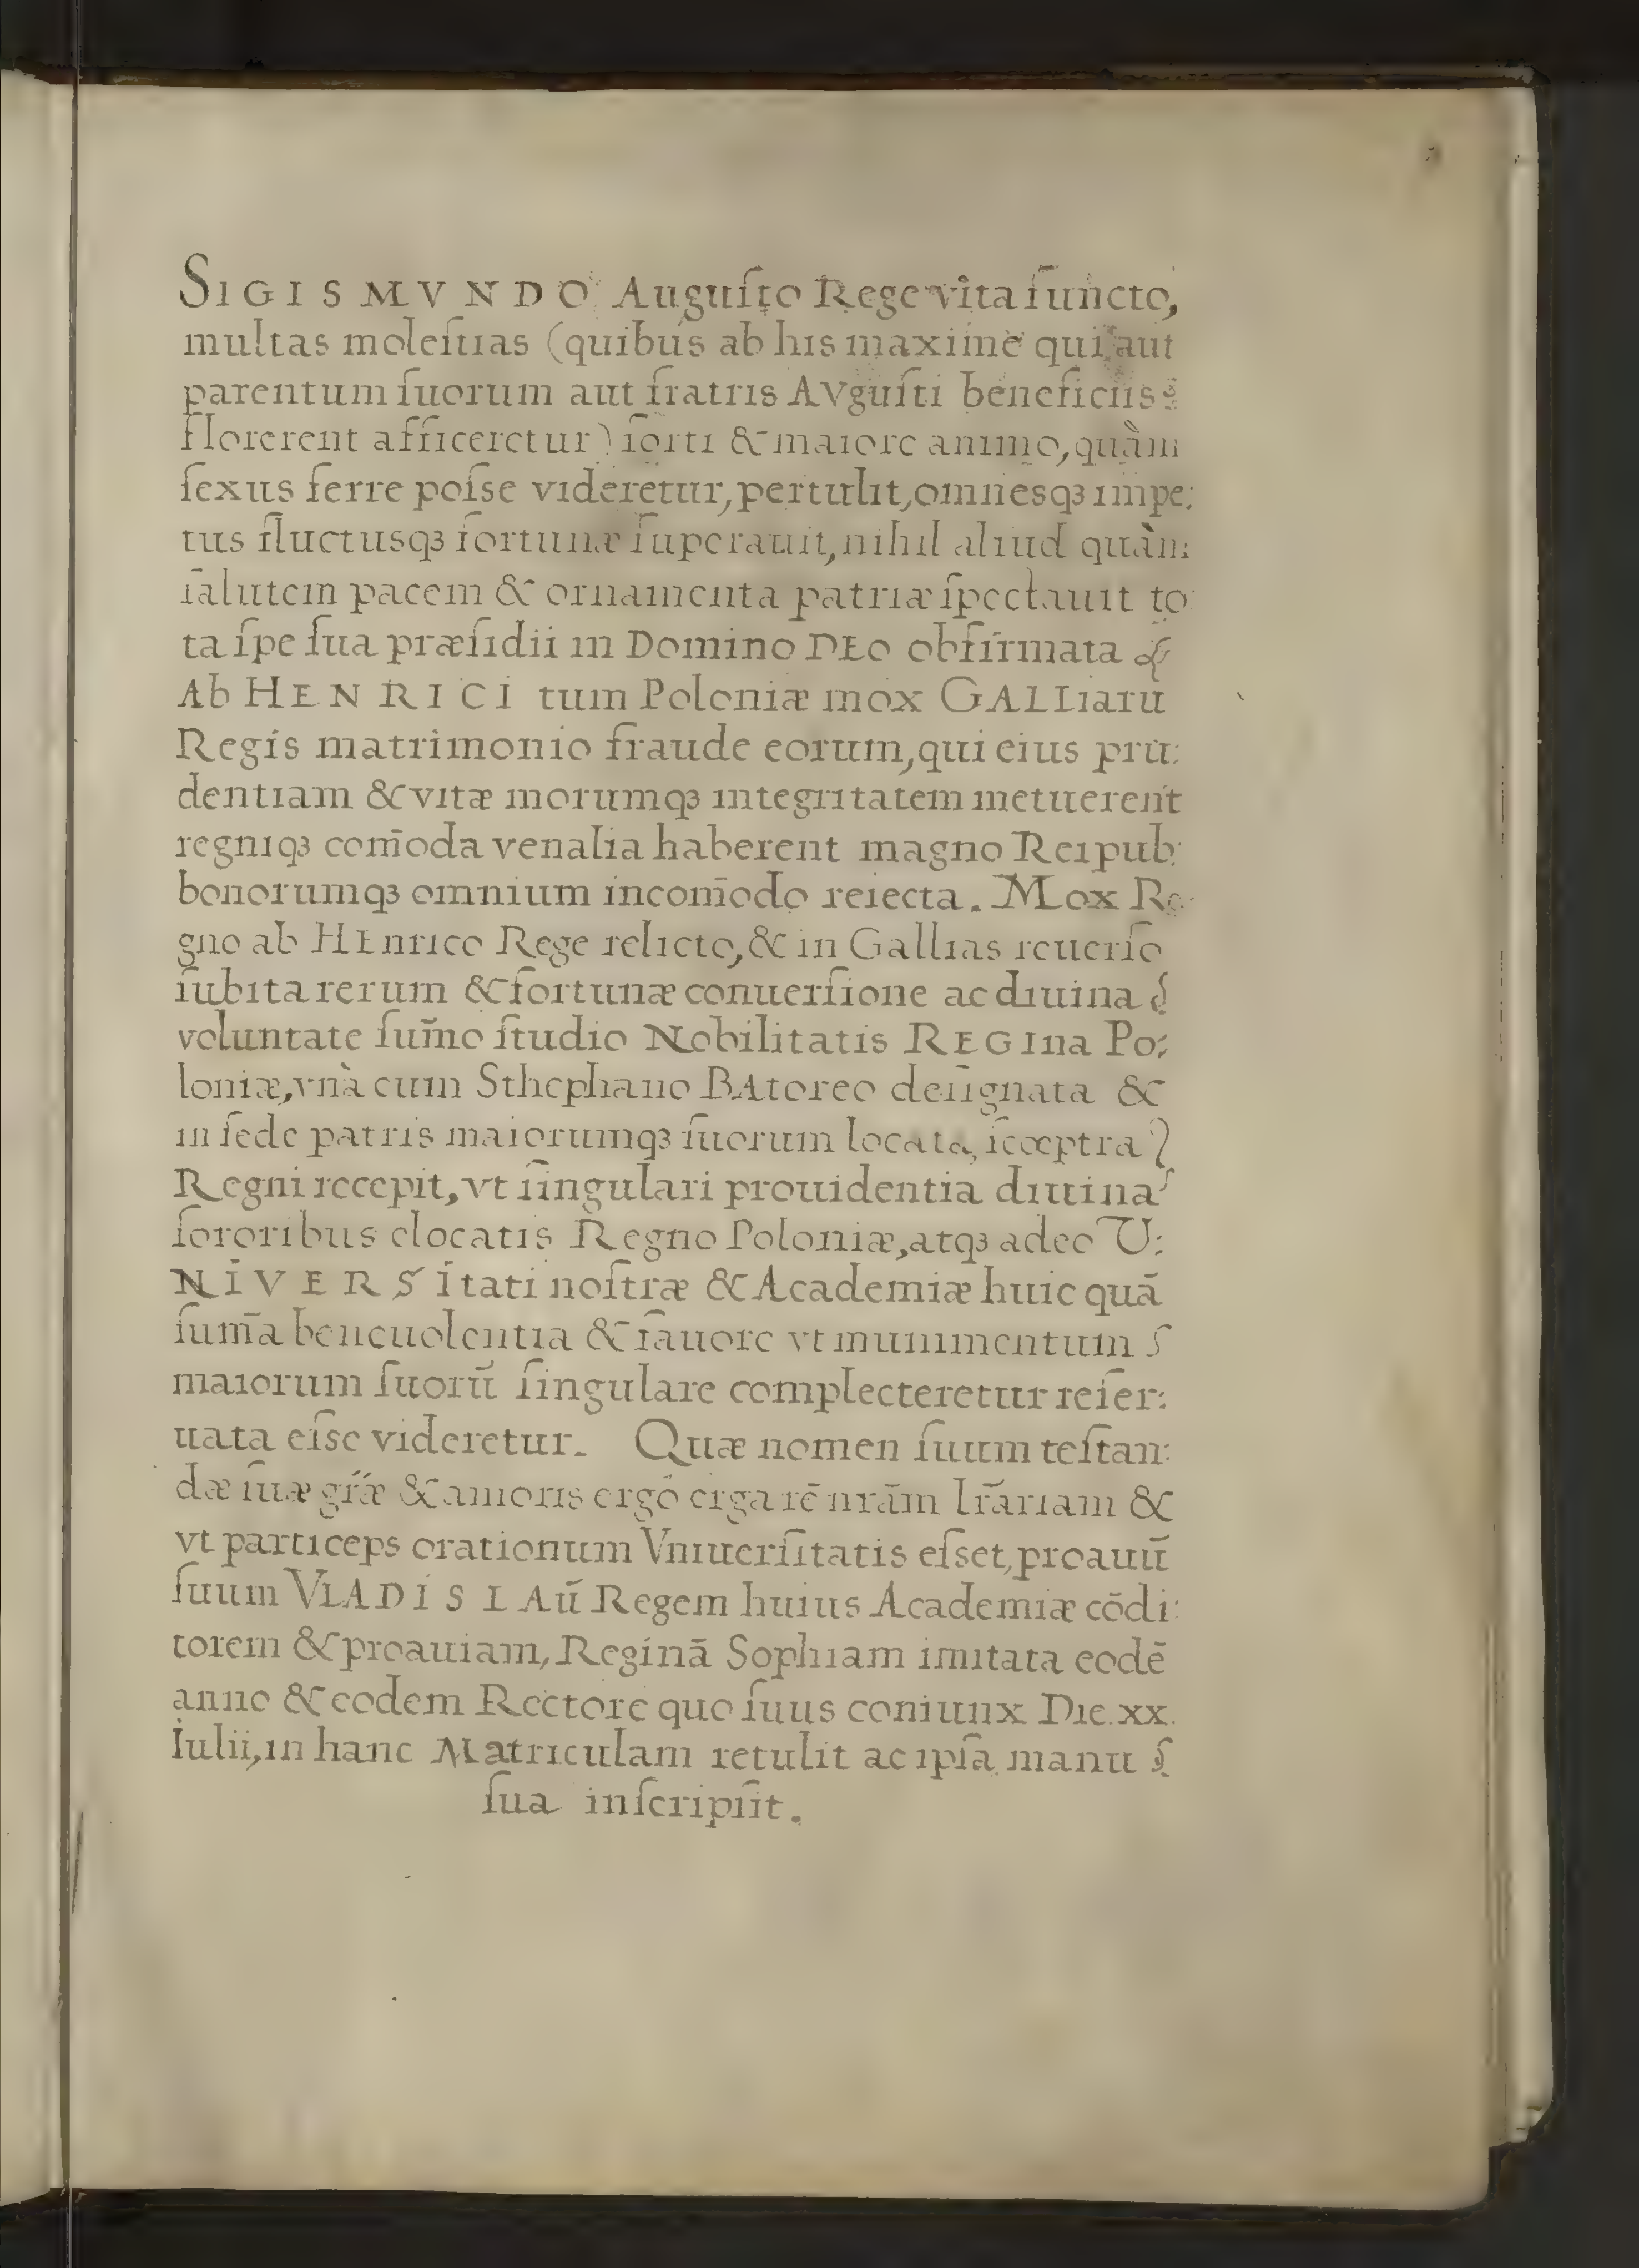 SIGISMVNDO Auguſto Rege vita functo,
multas moleſtias (quibus ab his maximè qui aut
parentum ſuorum aut fratris AVguſti beneficiis
florerent afficeretur) forti & maiore animo, quàm
ſexus ferre poſse videretur, pertulit, omnesqꝫ impe:
tus fluctusqꝫ fortunæ ſuperauit, nihil aliud quàm
ſalutem pacem & ornamenta patriæ ſpectauit to
ta ſpe ſua præſidii in Domino DEO obfirmata
Ab HENRICI tum Poloniæ mox GALLiarū
Regis matrimonio fraude eorum, qui eius pru:
dentiam & vitæ morumqꝫ integritatem metuerent
regniqꝫ com̄oda venalia haberent magno Reipub:
bonorumqꝫ omnium incom̄odo reiecta. Mox Re
gno ab HEnrico Rege relicto, & in Gallias reuerſo
ſubita rerum & fortunæ conuerſione ac diuina
voluntate ſum̄o ſtudio Nobilitatis REGIna Po:
loniæ, vnà cum Sthephano BAtoreo deſignata &
in ſede patris maiorumqꝫ ſuorum locata, ſcœptra
Regni recepit, vt ſingulari prouidentia diuina
ſororibus elocatis Regno Poloniæ, atqꝫ adeo U:
NIVERSItati noſtræ & Academiæ huic quā
ſum̄a beneuolentia & fauore vt munimentum
maiorum ſuorū ſingulare complecteretur reſer:
uata eſse videretur. Quæ nomen ſuum teſtan:
dæ ſuæ gr̄æ & amoris ergô erga rē nrām lr̄ariam &
vt particeps orationum Vniuerſitatis eſset, proauū
ſuum VLADISLAū Regem huius Academiæ cōdi:
torem & proauiam, Reginā Sophiam imitata eodē
anno & eodem Rectore quo ſuus coniunx Die. xx.
Iulii, in hanc Matriculam retulit ac ipſa manu
ſua inſcripſit.